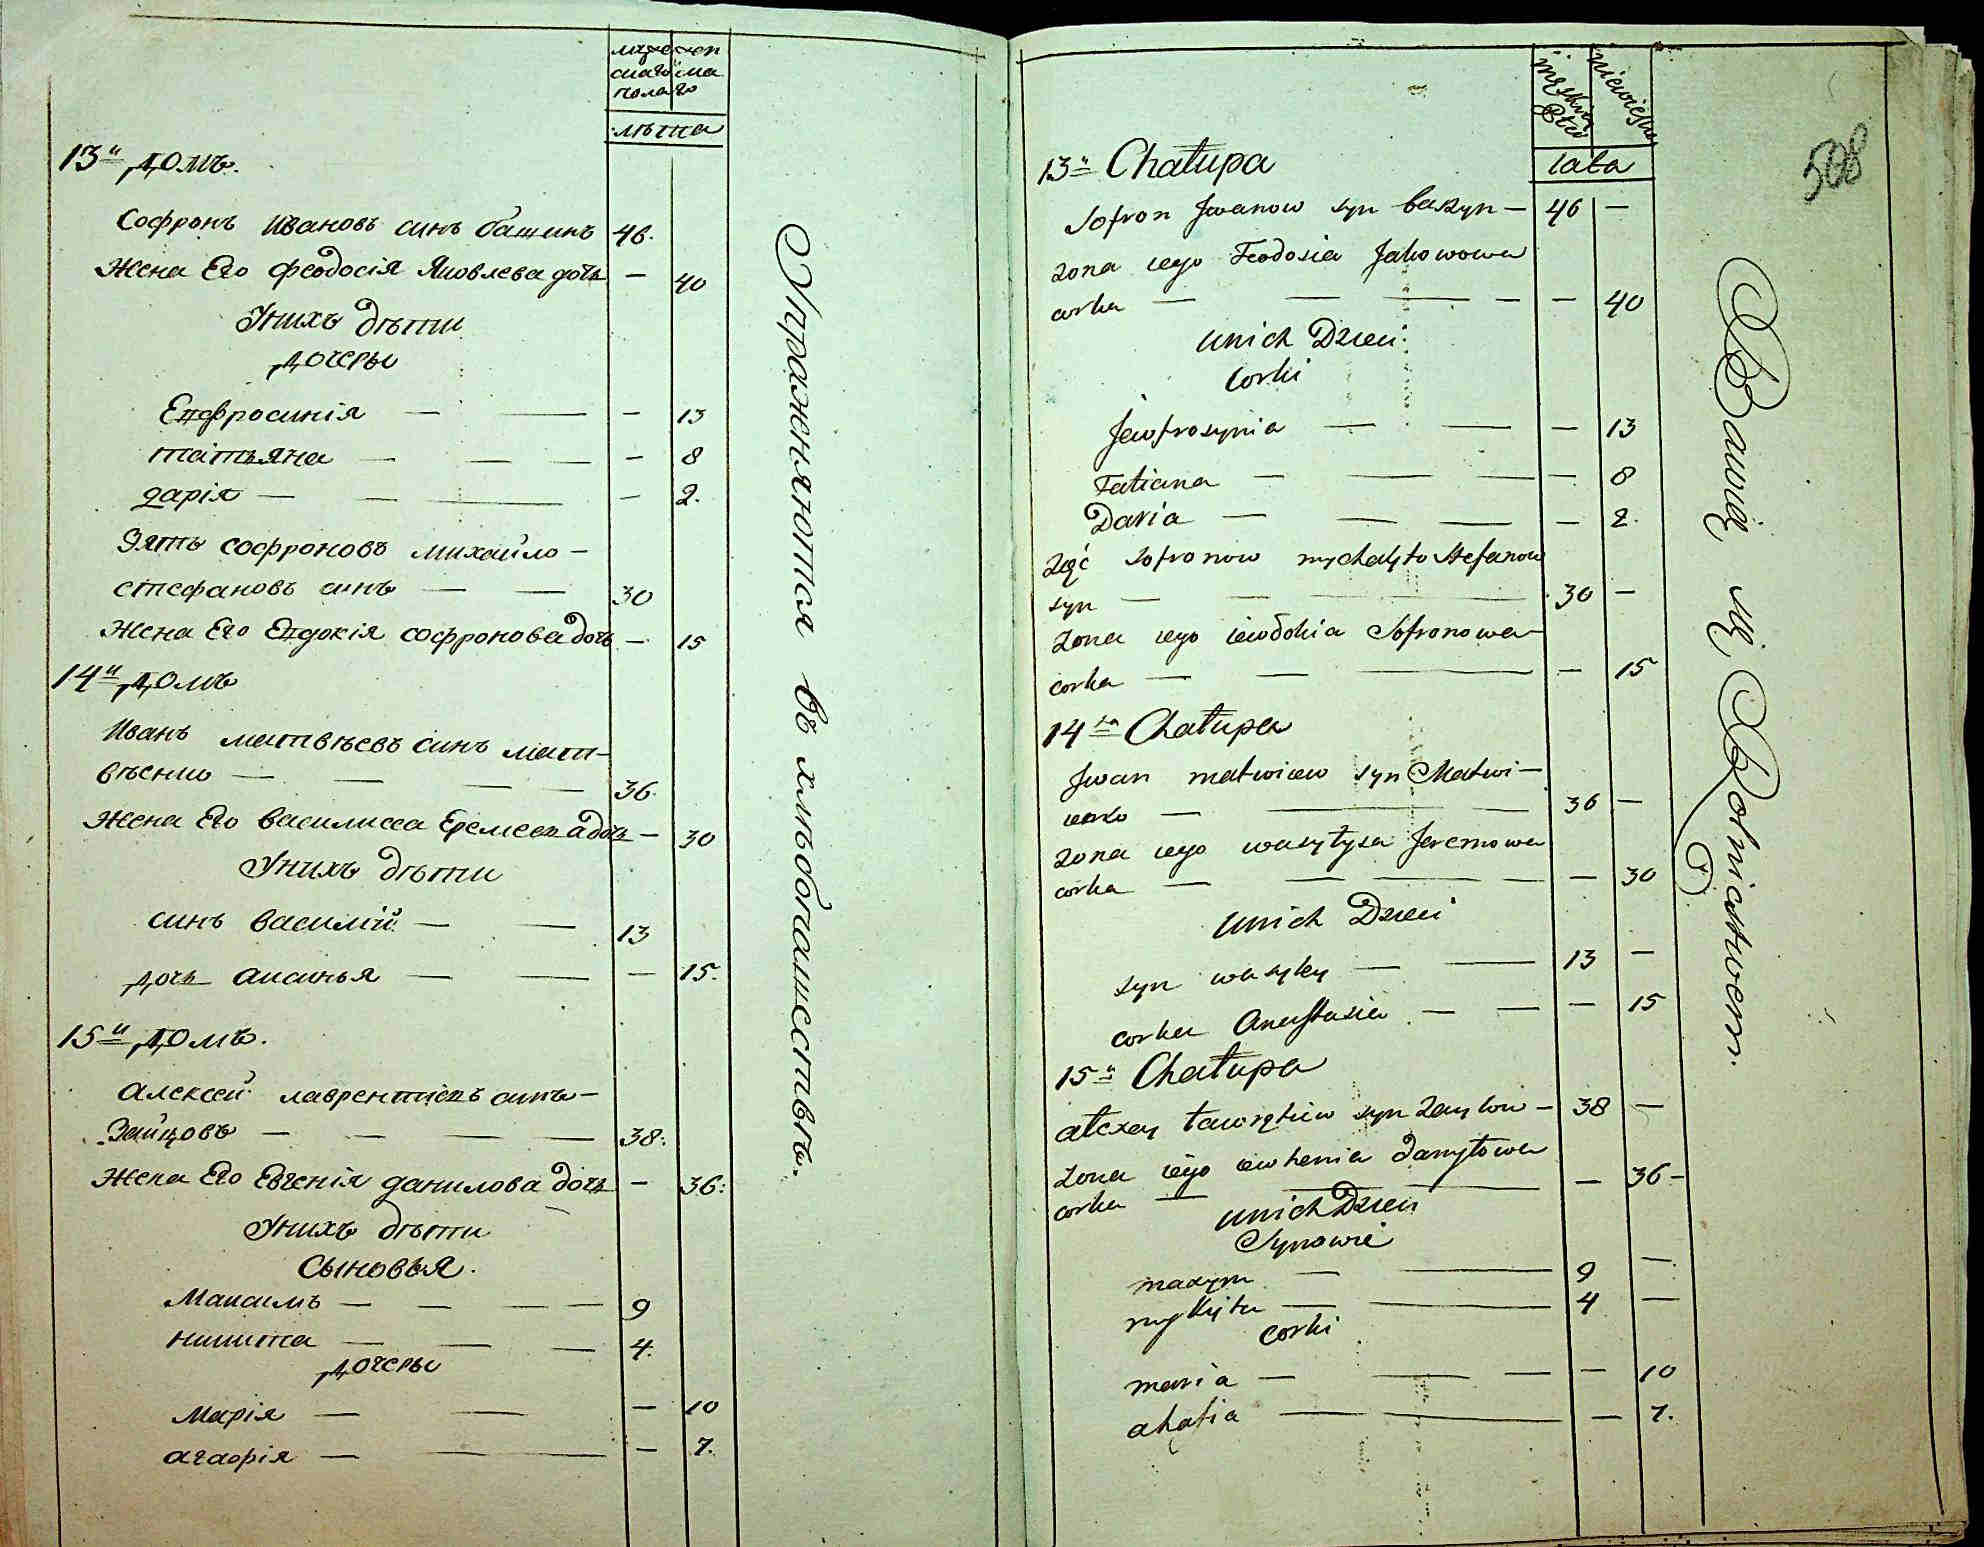 мужескаго пола
женскаго
лѣта
13й домъ.
Софронъ Ивановъ синъ башинъ 46.
Жена Его феодосія Яковлева дочь — 40
Унихъ дѣти
дочеры
Евфросинія — — — 13
татьяна — — — — 8
дарія — — — — 2.
Зять софроновъ михайло —
стефановъ синъ — — 30
Жена Его Евдокія софронова дочь — 15
14й домъ
Иванъ матвѣевъ синъ мат-
вѣенко — — — — 36.
Жена Его василисса Еремеева дочь — 30
Унихъ дѣти
синъ василій — — 13
дочь анасинья — — — 15.
15й домъ.
алексей лаврентіевъ синъ —
Зайцовъ — — — — 38.
Жена Его Евгенія данилова дочь — 36.
Унихъ дѣти
Сыновья.
Максимъ — — — — 9
никита — — — 4.
дочеры
Марія — — — 10
агафія — — — 7.
Упражняются въ хлѣбопашествѣ.
508
męska płeć
niewieścia
lata
13a Chałupa
Sofron Jwanow syn baszyn — 46 —
żona iego Teodosia Jakowowa
corka — — — — — 40
unich Dzieci
Corki
Jewfrosynia — — — 13
Tatiana — — — — 8
Daria — — — — 2.
zęć Sofronow mychayło Stefanow
syn — — — 30 —
żona iego iewdokia Sofronowa
corka — — — — 15
14ta Chałupa
Jwan matwiiew syn Matwi —
ienko — — — 36 —
żona iego wasyłysa Jeremowa
corka — — — — — 30
unich Dzieci
syn wasyley — — 13 —
corka Anastasia — — — 15
15a Chałupa
ałexey ławrętiew syn Zaycow — 38 —
żona iego iewhenia Danyłowa
corka — — — 36 —
unich Dzieci
Synowie
maxym — — 9 —
mykyta — — 4 —
corki
maria — — — — 10
ahafia — — — 7.
Bawią się Rolnictwem.